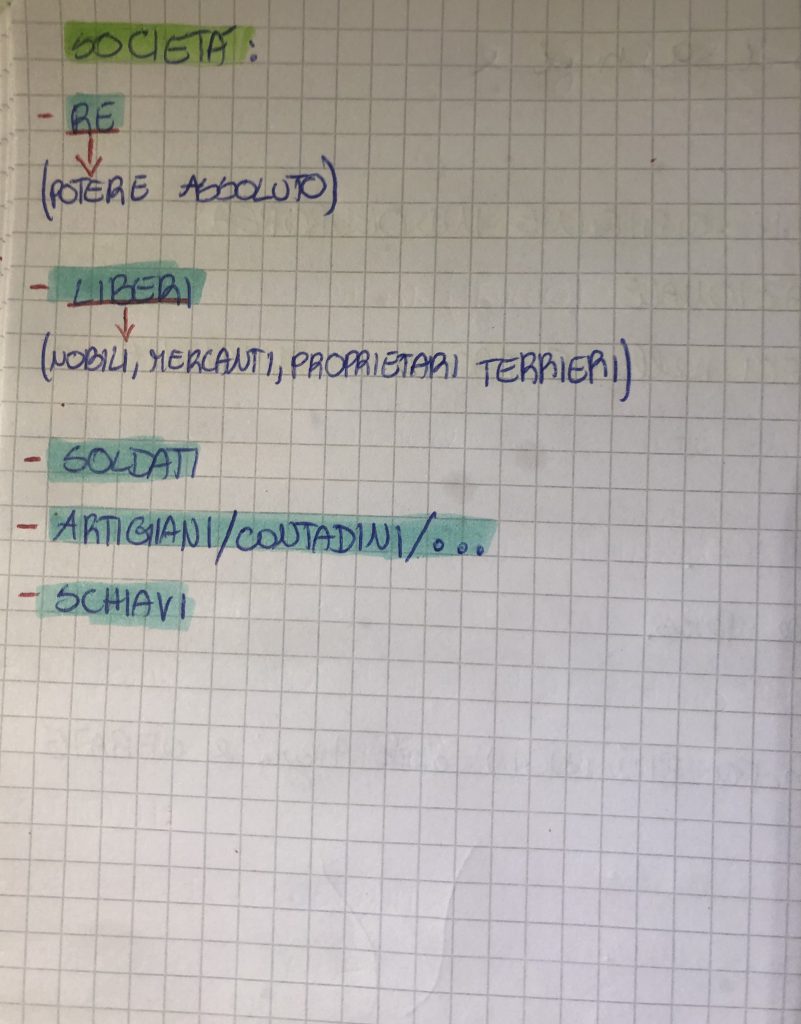 SOCIETÀ:
- RE
(POTERE ASSOLUTO)
- LIBERI
(NOBILI, MERCANTI, PROPRIETARI TERRIERI)
- SOLDATI
- ARTIGIANI/CONTADINI/...
- SCHIAVI